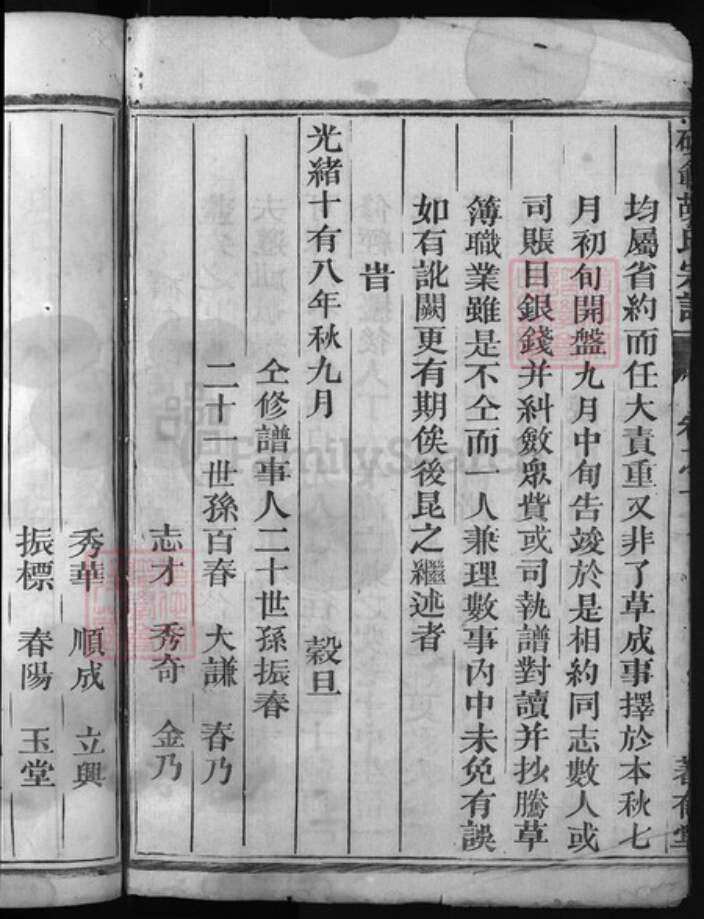 胡氏宗譜
均屬省約而任大責重又非了草成事擇於本秋七
月初旬開盤九月中旬告竣於是相約同志數人或
司賬目銀錢并糾斂眾費或司執譜對讀并抄騰草
簿職業雖是不仝而一人兼理數事內中未免有誤
如有訛闕更有期俟後昆之繼述者
旹
光緒十有八年秋九月 穀旦
仝修譜事人二十世孫振春
二十一世孫百春 大謙 春乃
志才 秀奇 金乃
秀華 順成 立興
振標 春陽 玉堂